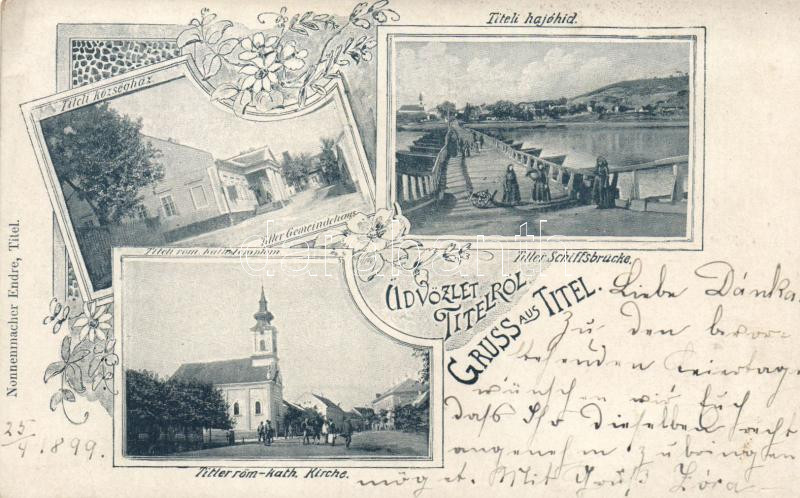 Titeli hajóhid.
Titeli községház
Titler Gemeindehaus
Titeli róm. kath. templom
Titler Schiffsbrücke.
ÜDVÖZLET
TITELRŐL.
GRUSS AUS TITEL.
Nonnenmacher Endre, Titel.
Titler röm-kath. Kirche.
25/4 1899.
Liebe Dánka
Zu den bevor-
stehenden Feiertage
wünschen wir Euch
dass Ihr dieselben recht
angenehm zubringen
möget. Mit Gruß Dóra